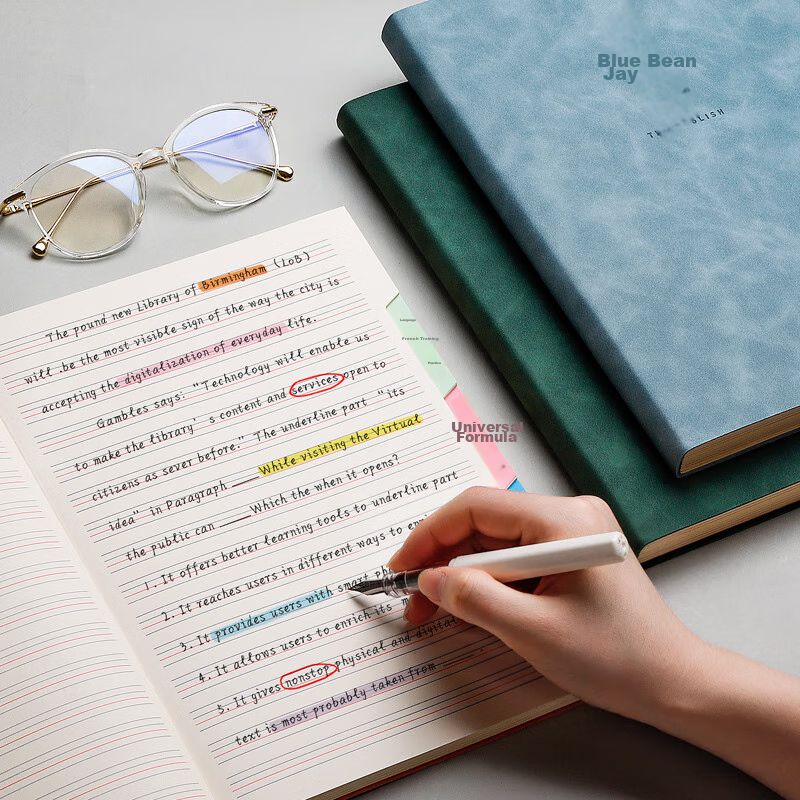 Blue Bean
Jay
The pound new Library of Birmingham (LoB)
will be the most visible sign of the way the city is
accepting the digitalization of everyday life.
Gambles says: "Technology will enable us
to make the library's content and services open to
citizens as sever before." The underline part "its
idea" in Paragraph ____ While visiting the Virtual
the public can ____ Which the when it opens?
1. It offers better learning tools to underline part
2. It reaches users in different ways to
3. It provides users with smart
4. It allows users to enrich its
5. It gives nonstop physical and digital
text is most probably taken from ____.
Language
French Training
Practice
Universal
Formula